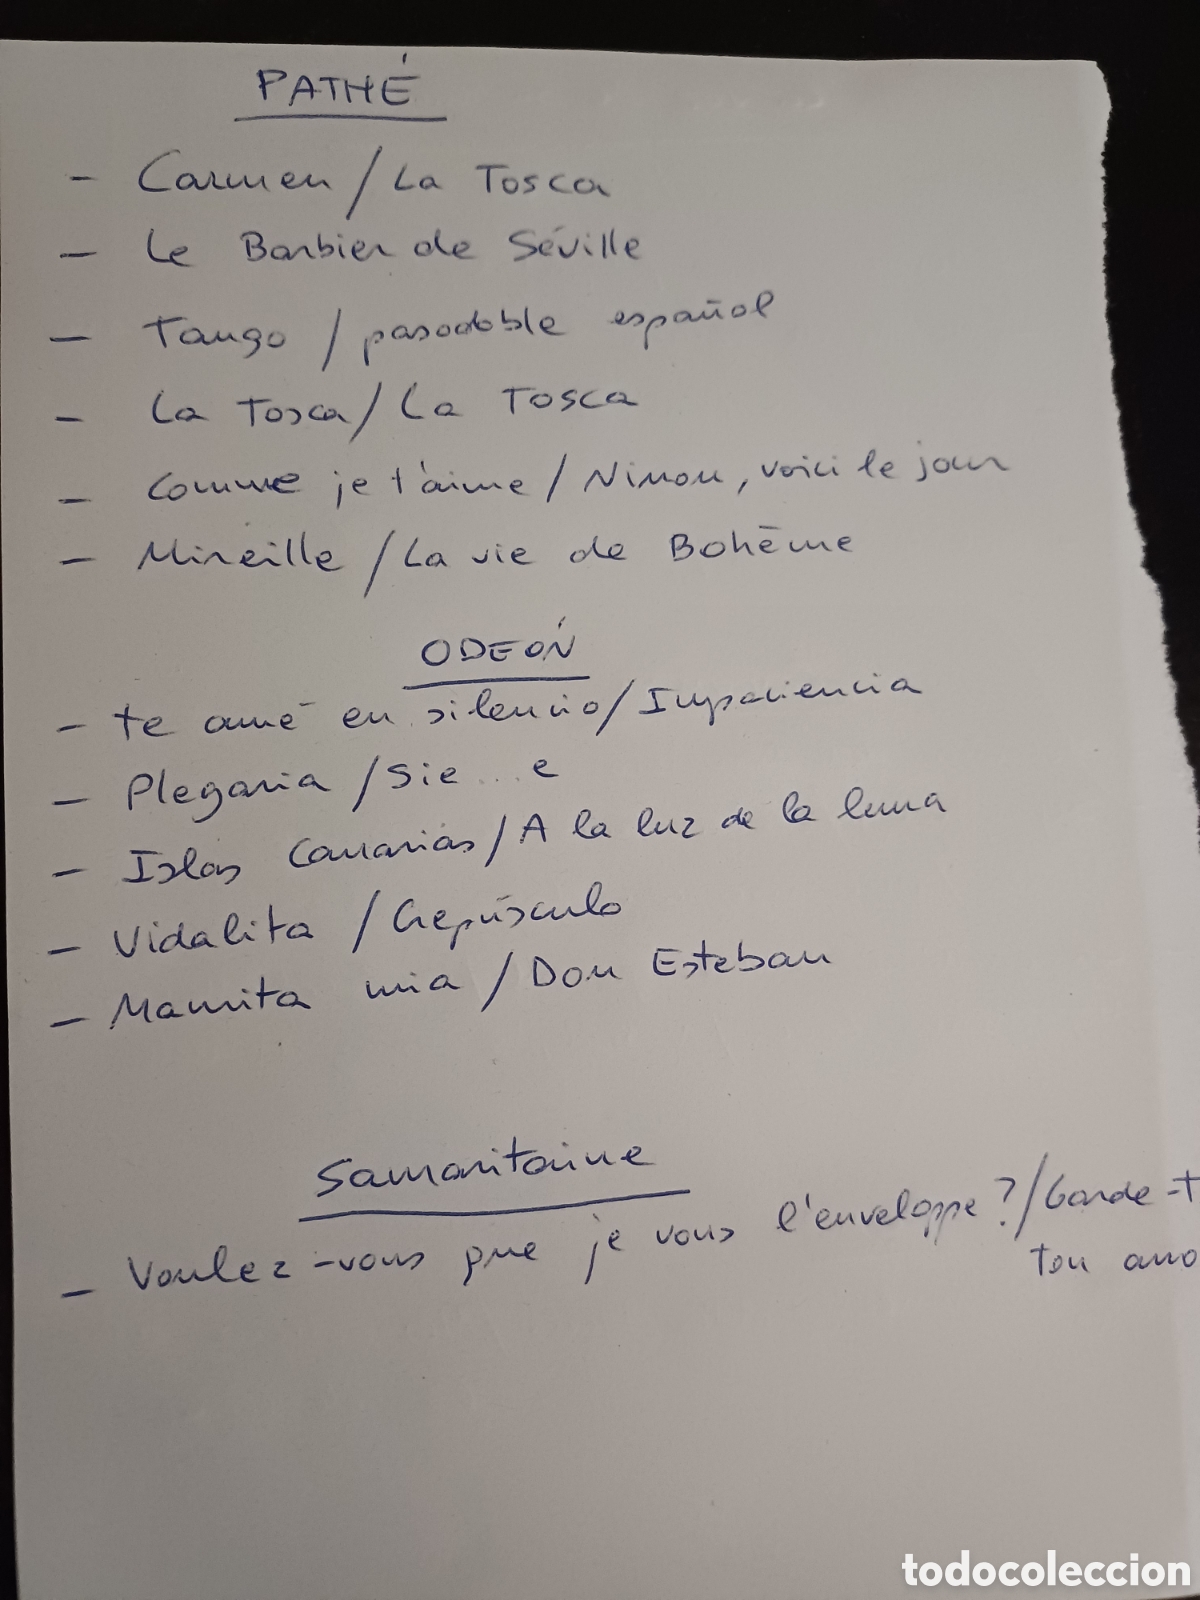 PATHÉ
- Carmen / La Tosca
- Le Barbier de Séville
- Tango / pasodoble español
- La Tosca / La Tosca
- Comme je t'aime / Ninon, voici le jour
- Mireille / La vie de Bohème
ODEÓN
- te amé en silencio / Impaciencia
- Plegaria / Sie...e
- Islas Canarias / A la luz de la luna
- Vidalita / Crepúsculo
- Mamita mia / Don Esteban
Samaritaine
- Voulez-vous que je vous l'enveloppe? / Garde-t
ton amo
todocoleccion